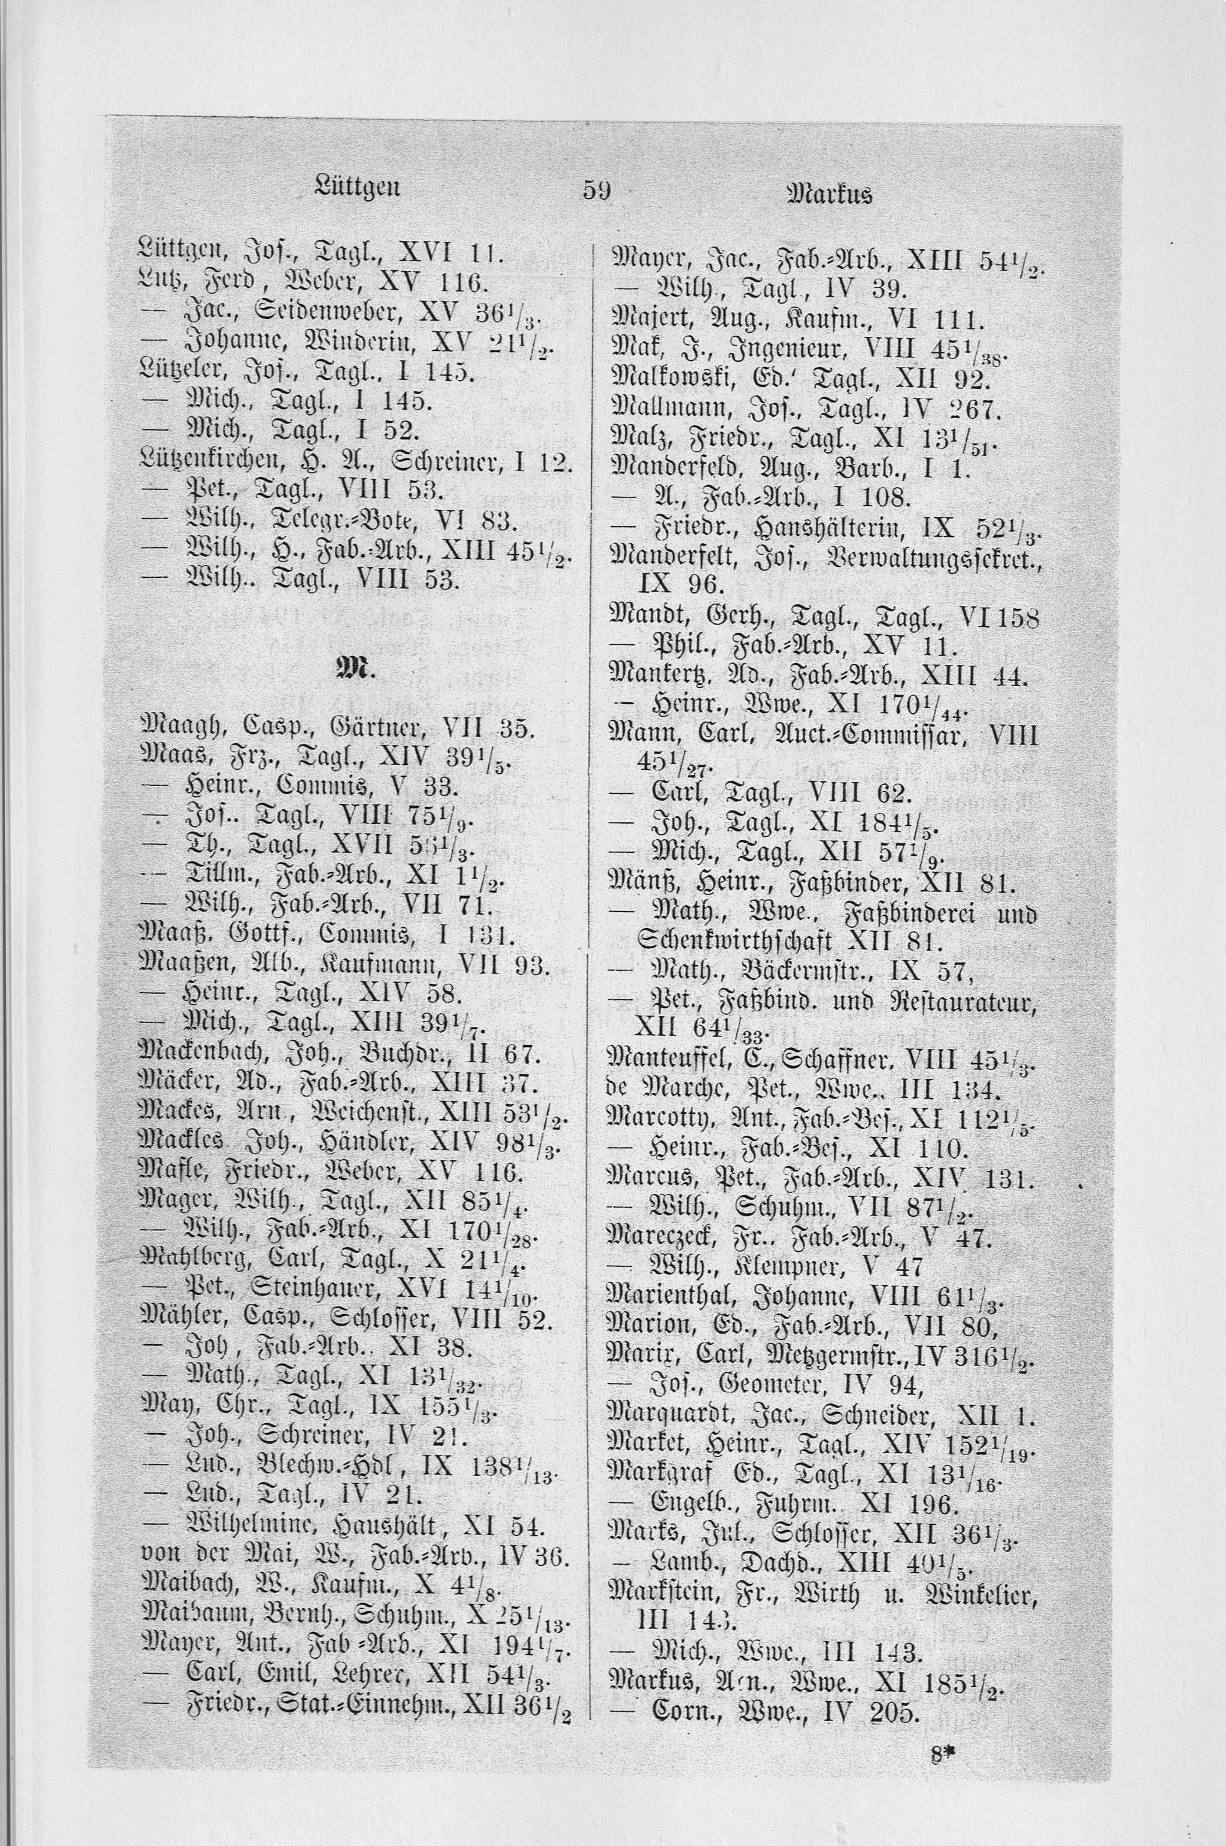 Lüttgen
59
Markus
Lüttgen, Jos., Tagl., XVI 11.
Lutz, Ferd, Weber, XV 116.
— Jac., Seidenweber, XV 36 1/3.
— Johanne, Winderin, XV 21 1/2.
Lützeler, Jos., Tagl., I 145.
— Mich., Tagl., I 145.
— Mich., Tagl., I 52.
Lützenkirchen, H. A., Schreiner, I 12.
— Pet., Tagl., VIII 53.
— Wilh., Telegr.-Bote, VI 83.
— Wilh., H., Fab.-Arb., XIII 45 1/2.
— Wilh.. Tagl., VIII 53.
M.
Maagh, Casp., Gärtner, VII 35.
Maas, Frz., Tagl., XIV 39 1/5.
— Heinr., Commis, V 33.
— Jos.. Tagl., VIII 75 1/9.
— Th., Tagl., XVII 1/3.
— Tillm., Fab.-Arb., XI 1 1/2.
— Wilh., Fab.-Arb., VII 71.
Maaß, Gottf., Commis, I 131.
Maaßen, Alb., Kaufmann, VII 93.
— Heinr., Tagl., XIV 58.
— Mich., Tagl., XIII 39 1/7.
Mackenbach, Joh., Buchdr., II 67.
Mäcker, Ad., Fab.-Arb., XIII 37.
Mackes, Arn., Weichenst., XIII 53 1/2.
Mackles Joh., Händler, XIV 98 1/3.
Mafle, Friedr., Weber, XV 116.
Mager, Wilh., Tagl., XII 85 1/4.
— Wilh., Fab.-Arb., XI 170 1/28.
Mahlberg, Carl, Tagl., X 21 1/4.
— Pet., Steinhauer, XVI 14 1/10.
Mähler, Casp., Schlosser, VIII 52.
— Joh, Fab.-Arb.. XI 38.
— Math., Tagl., XI 13 1/32.
May, Chr., Tagl., IX 155 1/3.
— Joh., Schreiner, IV 21.
— Lud., Blechw.-Hdl, IX 138 1/13.
— Lud., Tagl., IV 21.
— Wilhelmine, Haushält, XI 54.
von der Mai, W., Fab.-Arb., IV 36.
Maibach, W., Kaufm., X 4 1/8.
Maibaum, Bernh., Schuhm., X 25 1/13.
Mayer, Ant., Fab-Arb., XI 194 1/7.
— Carl, Emil, Lehrer, XII 54 1/3.
— Friedr., Stat.-Einnehm., XII 36 1/2
Mayer, Jac., Fab.-Arb., XIII 54 1/2.
— Wilh., Tagl, IV 39.
Majert, Aug., Kaufm., VI 111.
Mak, J., Ingenieur, VIII 45 1/38.
Malkowski, Ed.' Tagl., XII 92.
Mallmann, Jos., Tagl., IV 267.
Malz, Friedr., Tagl., XI 13 1/51.
Manderfeld, Aug., Barb., I 1.
— A., Fab.-Arb., I 108.
— Friedr., Hanshälterin, IX 52 1/3.
Manderfelt, Jos., Verwaltungssekret.,
IX 96.
Mandt, Gerh., Tagl., Tagl., VI 158
— Phil., Fab.-Arb., XV 11.
Mankertz, Ad., Fab.-Arb., XIII 44.
— Heinr., Wwe., XI 170 1/44.
Mann, Carl, Auct.-Commissar, VIII
45 1/27.
— Carl, Tagl., VIII 62.
— Joh., Tagl., XI 184 1/5.
— Mich., Tagl., XII 57 1/9.
Mänß, Heinr., Faßbinder, XII 81.
— Math., Wwe., Faßbinderei und
Schenkwirthschaft XII 81.
— Math., Bäckermstr., IX 57,
— Pet., Faßbind. und Restaurateur,
XII 64 1/33.
Manteuffel, C., Schaffner, VIII 45 1/3.
de Marche, Pet., Wwe.. III 134.
Marcotty, Ant., Fab.-Bes., XI 112 1/5.
— Heinr., Fab.-Bes., XI 110.
Marcus, Pet., Fab.-Arb., XIV 131.
— Wilh., Schuhm., VII 87 1/2.
Mareczeck, Fr., Fab.-Arb., V 47.
— Wilh., Klempner, V 47
Marienthal, Johanne, VIII 61 1/3.
Marion, Ed., Fab.-Arb., VII 80,
Marix, Carl, Metzgermstr., IV 316 1/2.
— Jos., Geometer, IV 94,
Marquardt, Jac., Schneider, XII 1.
Market, Heinr., Tagl., XIV 152 1/19.
Markgraf Ed., Tagl., XI 13 1/16.
— Engelb., Fuhrm.. XI 196.
Marks, Jul., Schlosser, XII 36 1/3.
— Lamb., Dachd., XIII 40 1/5.
Markstein, Fr., Wirth u. Winkelier,
III 143.
— Mich., Wwe., III 143.
Markus, Arn., Wwe., XI 185 1/2.
— Corn., Wwe., IV 205.
8*